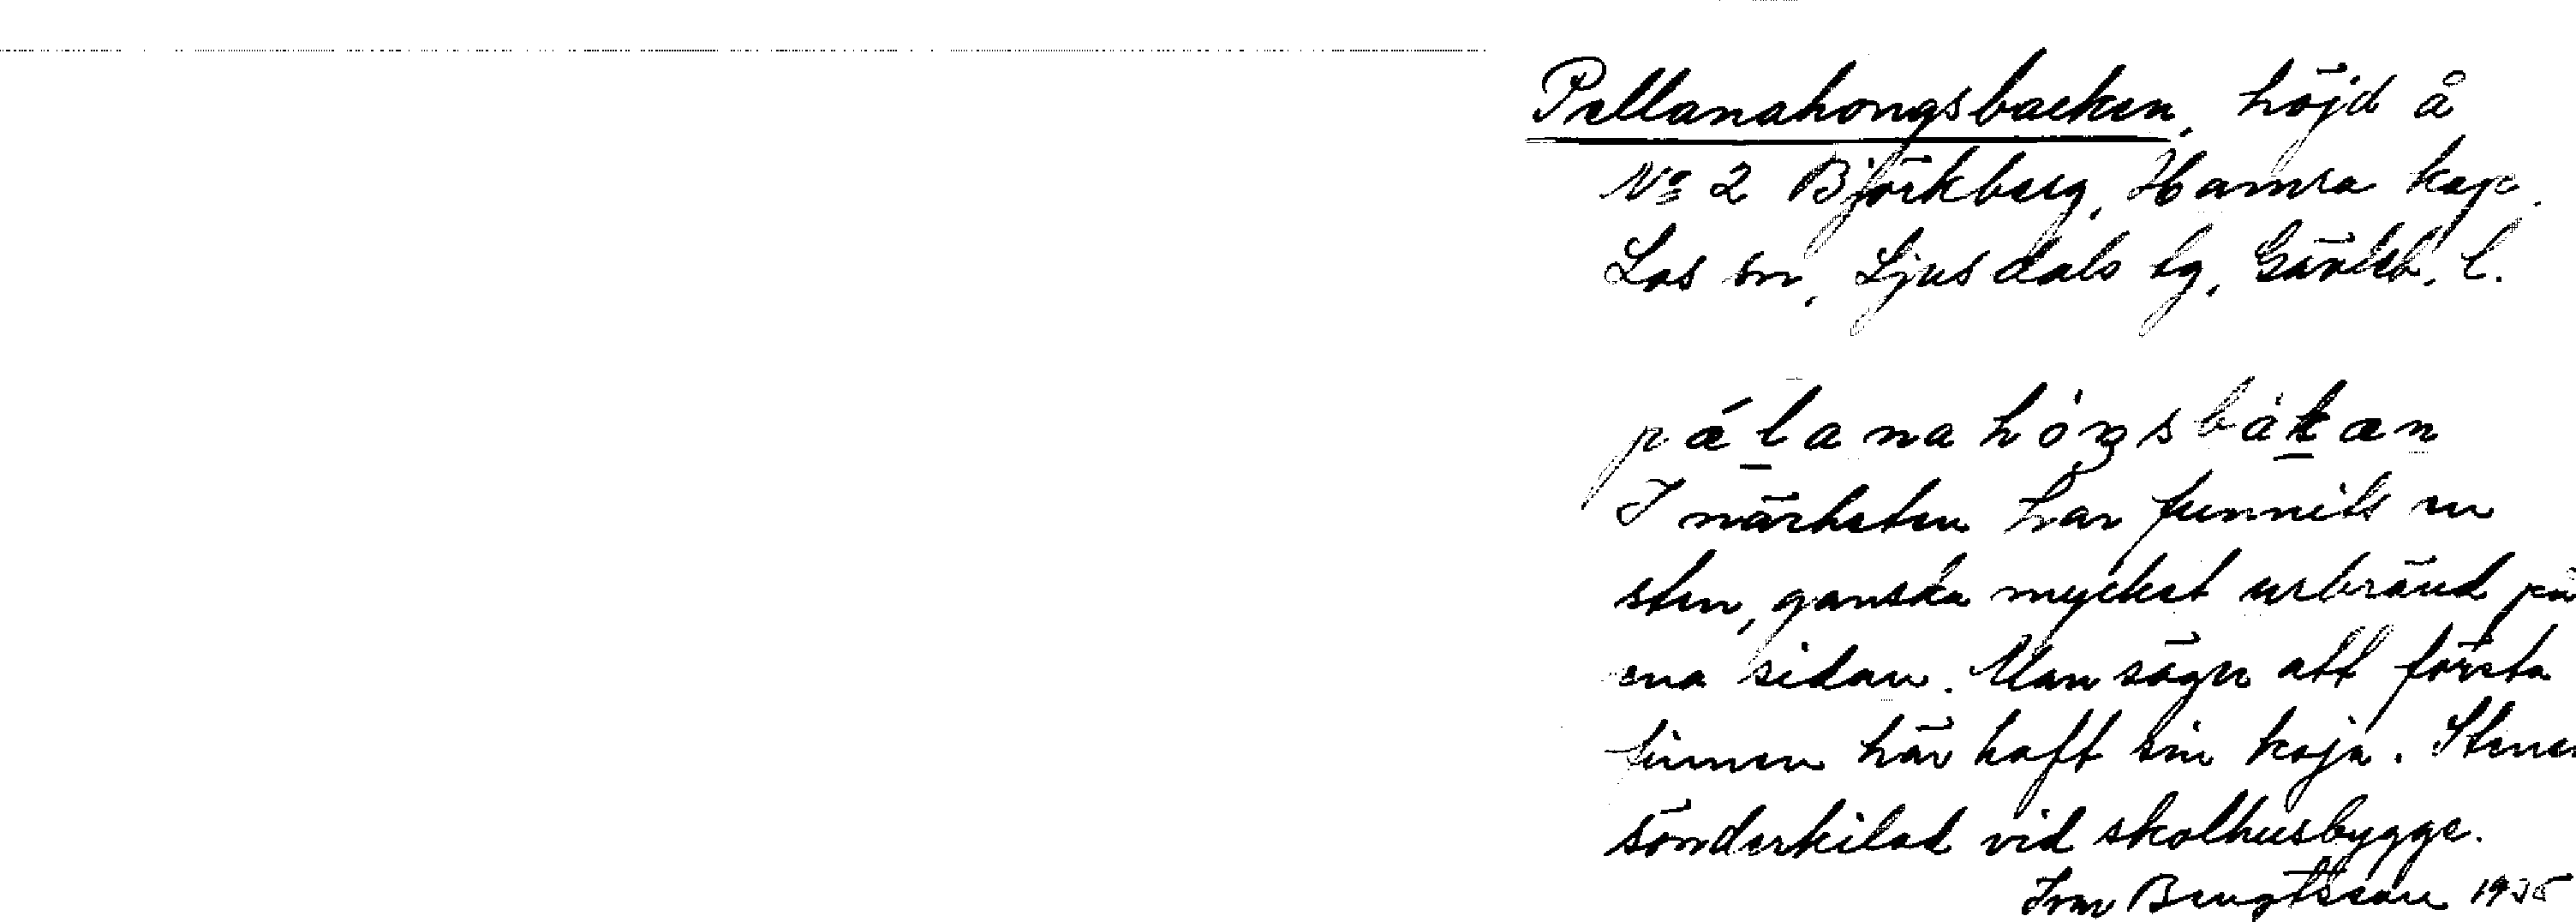 Pellanahongsbacken, höjd å
No 2 Björkberg, Hamra kap.
Los sn, Ljusdals tg, Gävleb. l.
pǽlanahóŋsbàkæn
I närheten har funnits en
sten, ganska mycket urbränd på
ena sidan. Man säger att första
finnen här haft sin koja. Stenen
sönderkilad vid skolhusbygge.
Ivar Bengtsson 1935